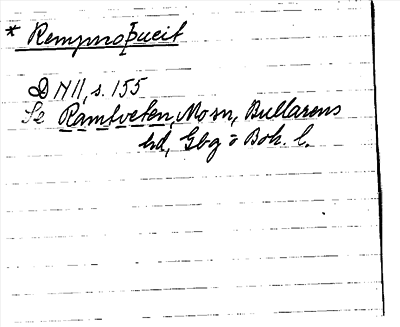 * Rempnoþueit
DN II, s. 155
Se Ramtveten, Mo sn, Bullarens
hd, Gbg o Boh. l.